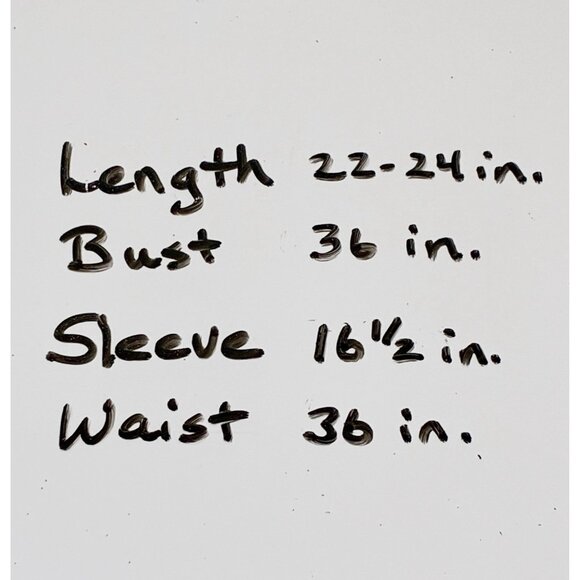 Length 22-24 in.
Bust 36 in.
Sleeve 16 1/2 in.
Waist 36 in.